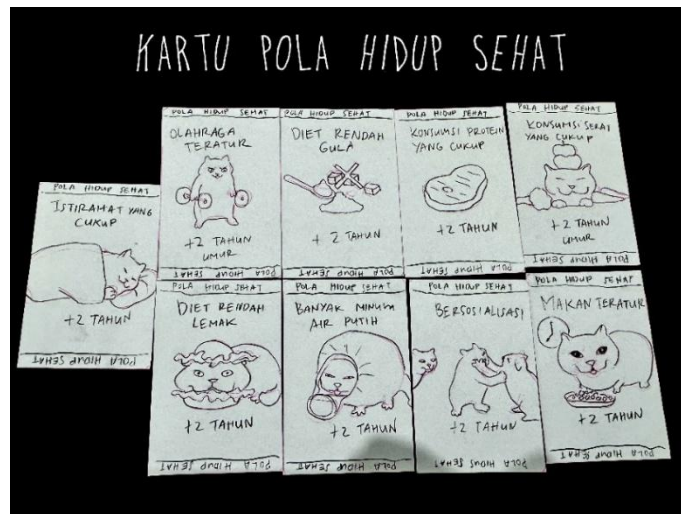 KARTU POLA HIDUP SEHAT
POLA HIDUP SEHAT
ISTIRAHAT YANG
CUKUP
+2 TAHUN
POLA HIDUP SEHAT
POLA HIDUP SEHAT
OLAHRAGA
TERATUR
+2 TAHUN
UMUR
POLA HIDUP SEHAT
POLA HIDUP SEHAT
DIET RENDAH
GULA
+ 2 TAHUN
POLA HIDUP SEHAT
POLA HIDUP SEHAT
KONSUMSI PROTEIN
YANG CUKUP
+2 TAHUN
POLA HIDUP SEHAT
POLA HIDUP SEHAT
KONSUMSI SERAT
YANG CUKUP
+2 TAHUN
UMUR
POLA HIDUP SEHAT
POLA HIDUP SEHAT
DIET RENDAH
LEMAK
+2 TAHUN
POLA HIDUP SEHAT
POLA HIDUP SEHAT
BANYAK MINUM
AIR PUTIH
+2 TAHUN
POLA HIDUP SEHAT
POLA HIDUP SEHAT
BERSOSIALISASI
+2 TAHUN
POLA HIDUP SEHAT
POLA HIDUP SEHAT
MAKAN TERATUR
+2 TAHUN
POLA HIDUP SEHAT